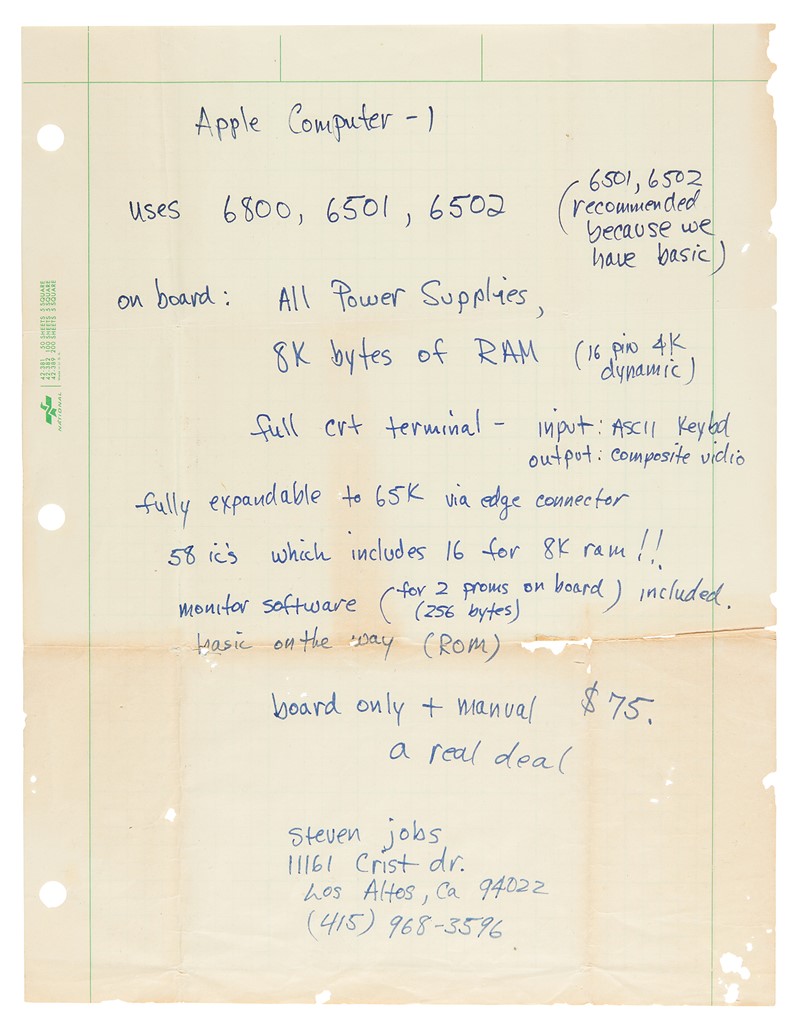 Apple Computer - 1
uses 6800, 6501, 6502 (6501, 6502
recommended
because we
have basic)
on board: All Power Supplies,
8K bytes of RAM (16 pin 4K
dynamic)
full crt terminal - input: ASCII Keybd
output: composite vidio
fully expandable to 65K via edge connector
58 ic's which includes 16 for 8K ram!!
monitor software (for 2 proms on board) included.
(256 bytes)
basic on the way (ROM)
board only + manual $75.
a real deal
Steven jobs
11161 Crist dr.
Los Altos, Ca 94022
(415) 968-3596
42-381 50 SHEETS 5 SQUARE
42-382 100 SHEETS 5 SQUARE
42-389 200 SHEETS 5 SQUARE
NATIONAL